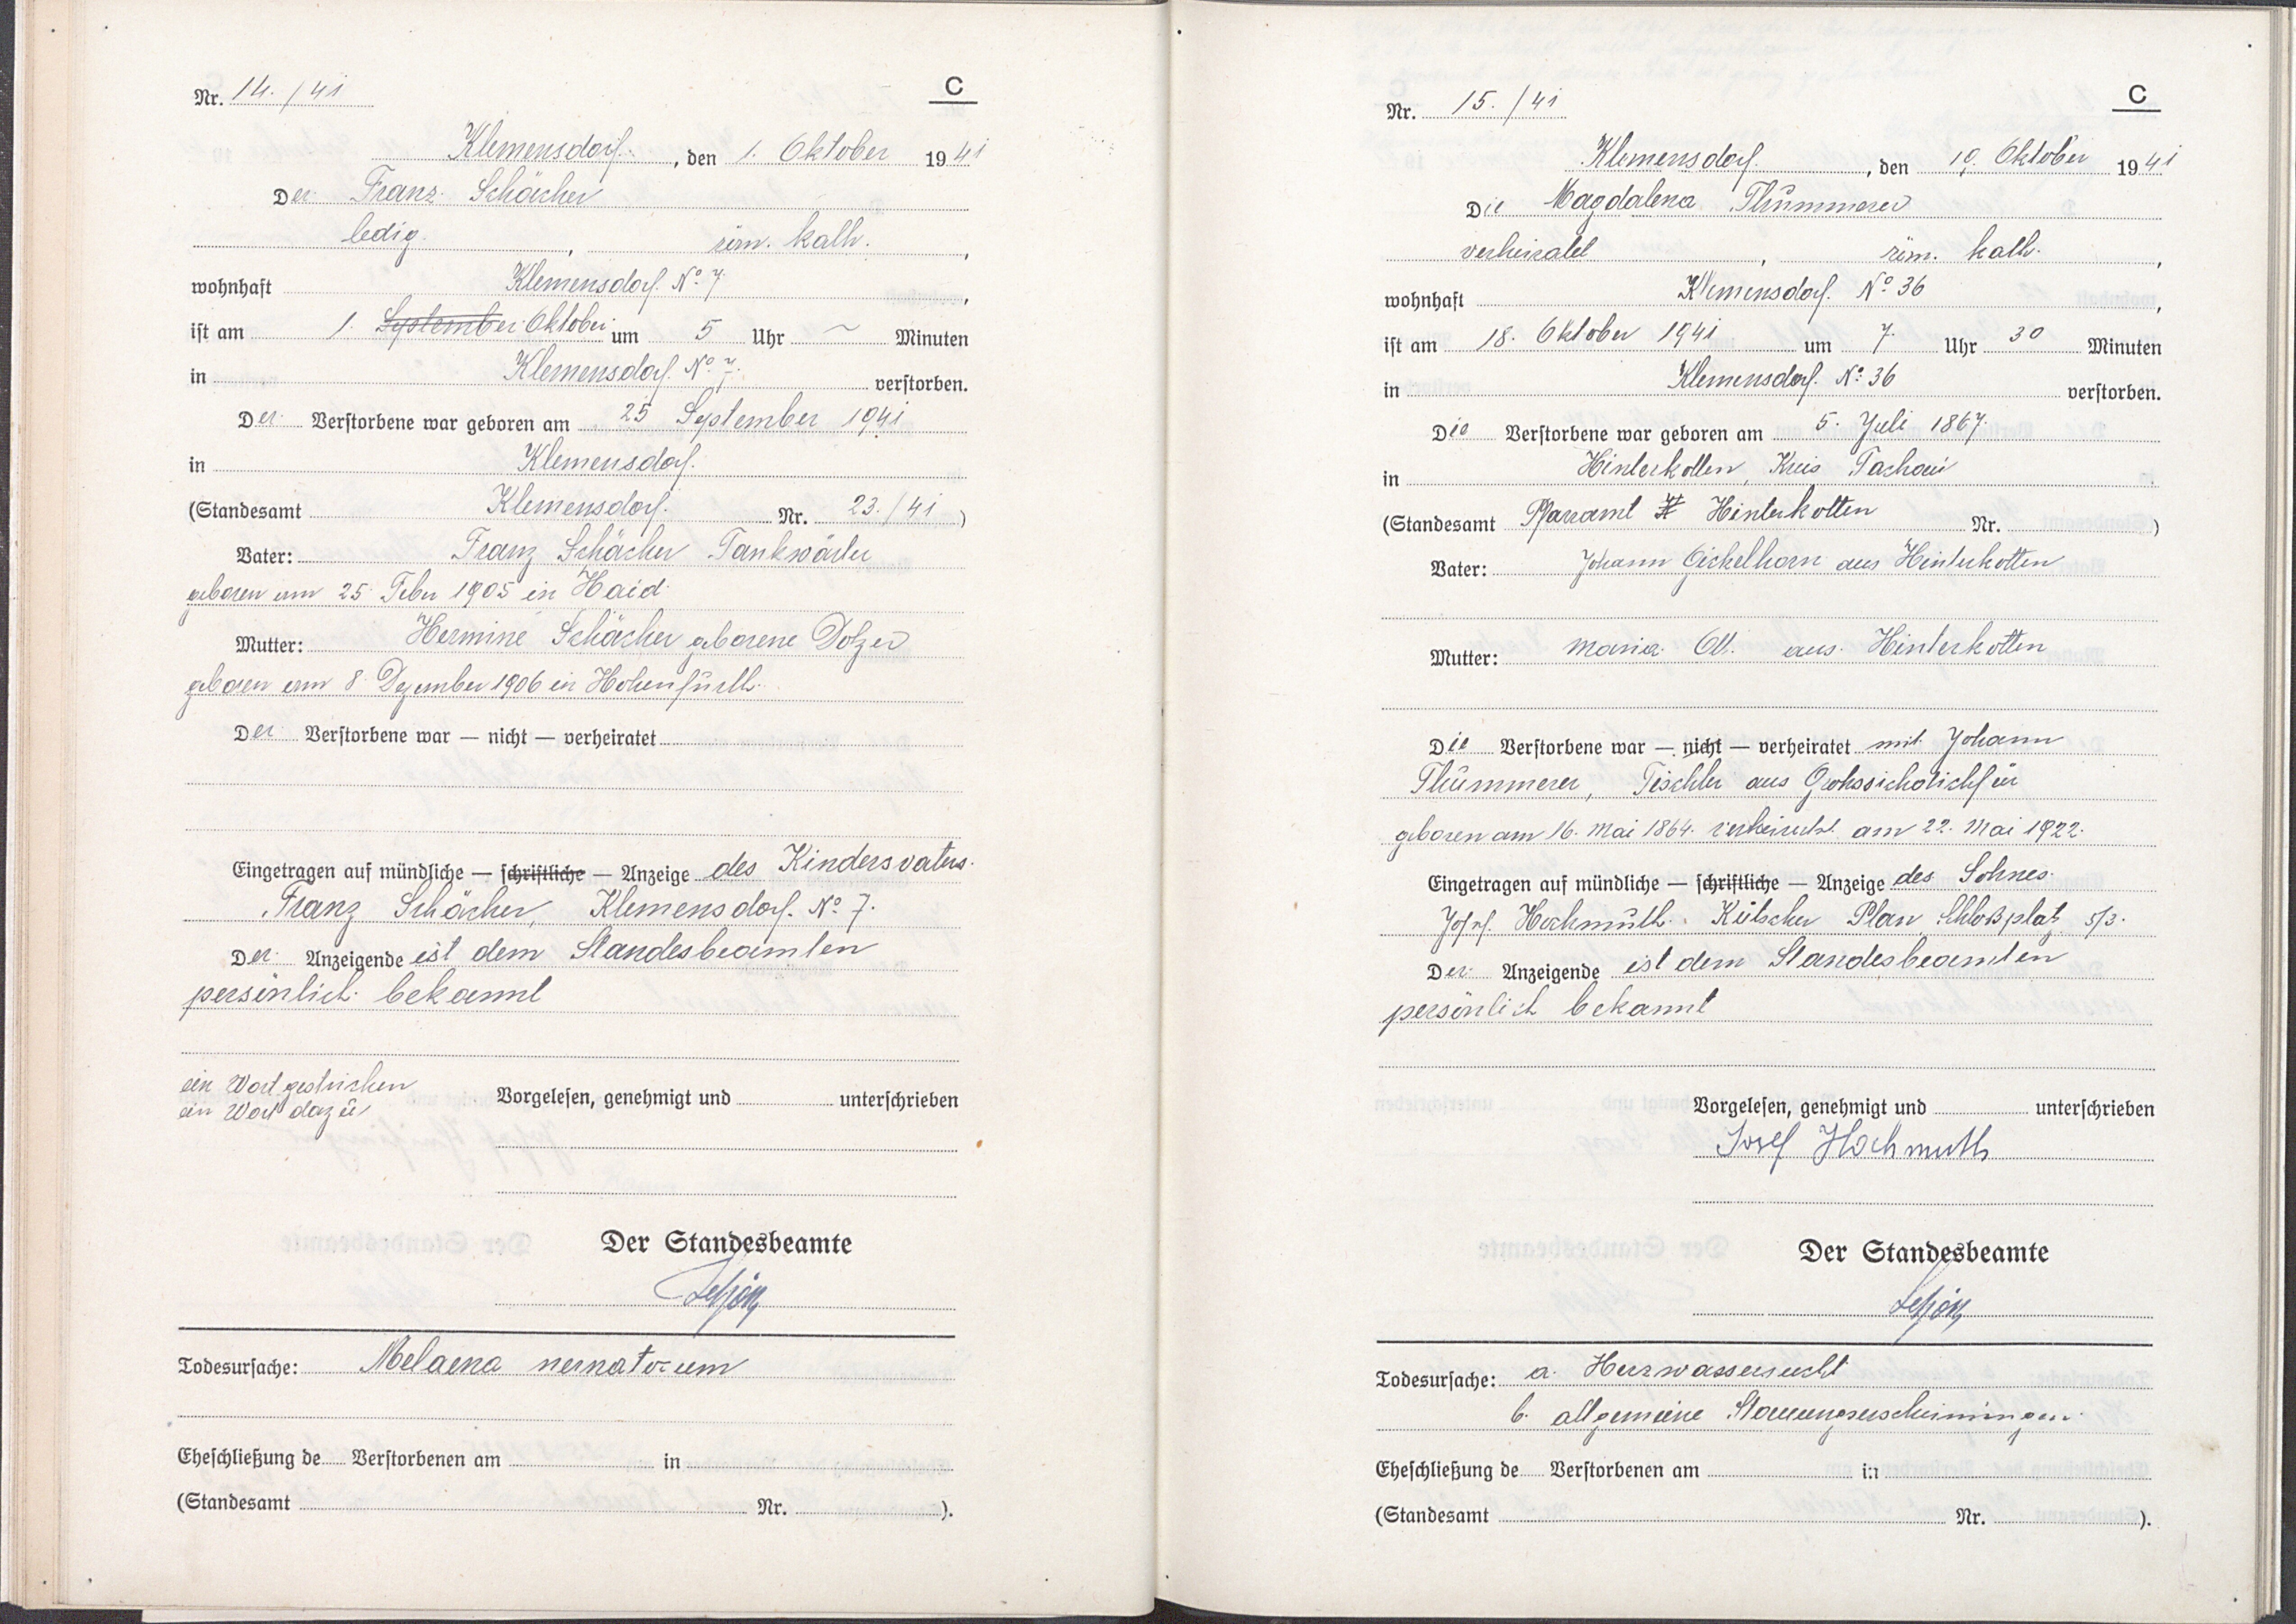 Nr. 14. /41
C
Klemensdorf, den 1. Oktober 1941
Der Franz Schächer
ledig, röm. kath.,
wohnhaft Klemensdorf No 7,
ist am 1. September Oktober um 5 Uhr ~ Minuten
in Klemensdorf No 7. verstorben.
Der Verstorbene war geboren am 25 September 1941
in Klemensdorf
(Standesamt Klemensdorf Nr. 23./41)
Vater: Franz Schächer Tankwärter
geboren am 25. Feber 1905 in Haid
Mutter: Hermine Schächer geborene Dolzer
geboren am 8. Dezember 1906 in Hohenfurth
Der Verstorbene war — nicht — verheiratet
Eingetragen auf mündliche — schriftliche — Anzeige des Kindersvaters
Franz Schächer, Klemensdorf No 7.
Der Anzeigende ist dem Standesbeamten
persönlich bekannt
ein Wort gestrichen
ein Wort dazu
Vorgelesen, genehmigt und unterschrieben
Der Standesbeamte
Todesursache: Melaena nernatorum
Eheschließung de Verstorbenen am in
(Standesamt Nr. ).
Nr. 15. /41
C
Klemensdorf, den 19. Oktober 1941
Die Magdalena Thümmerer
verheiratet, röm. kath.,
wohnhaft Klemensdorf No 36,
ist am 18. Oktober 1941 um 7 Uhr 30 Minuten
in Klemensdorf No 36 verstorben.
Die Verstorbene war geboren am 5. Juli 1867
in Hinterkotten, Kreis Tachau
(Standesamt Pfarramt H Hinterkotten Nr. )
Vater: Johann Eichelhorn aus Hinterkotten
Mutter: Maria Ott aus Hinterkotten
Die Verstorbene war — nicht — verheiratet mit Johann
Thümmerer, Tischler aus
geboren am 16. Mai 1864. verheiratet am 22. Mai 1922.
Eingetragen auf mündliche — schriftliche — Anzeige des Sohnes
Josef Hochmuth Kutscher Plan Schloßplatz 5/3.
Der Anzeigende ist dem Standesbeamten
persönlich bekannt
Vorgelesen, genehmigt und unterschrieben
Josef Hochmuth
Der Standesbeamte
Todesursache: a. Herzwassersucht
b. allgemeine Stauungserscheinungen
Eheschließung de Verstorbenen am in
(Standesamt Nr. ).